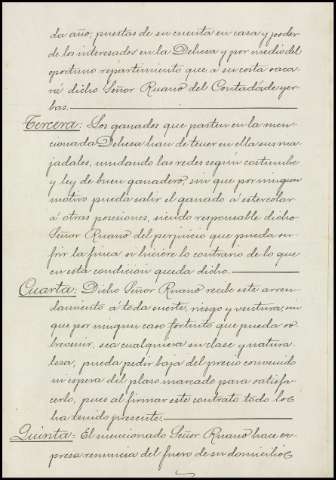 da año; puestas de su cuenta en casa y poder
de los interesados en la Dehesa y por medio del
oportuno repartimiento que a su costa saca-
rá dicho Señor Ruano del Contador de yer-
bas.
Tercera: Los ganados que pasten en la men-
cionada Dehesa han de tener en ella sus ma-
jadales, mudando las redes según costumbre
y ley de buen ganadero, sin que por ningun
motivo pueda salir el ganado á estercolar
á otras posesiones, siendo responsable dicho
Señor Ruano del perjuicio que pueda su-
frir la finca si hiciere lo contrario de lo que
en esta condición queda dicho.
Cuarta: Dicho Señor Ruano recibe este arren-
damiento á toda suerte, riesgo y ventura; sin
que por ningun caso fortuito que pueda so-
brevenir, sea cualquiera su clase y natura-
lesa, pueda pedir baja del precio convenido
ni espera del plazo marcado para satisfa-
cerlo, pues al firmar este contrato todo lo
ha tenido presente.
Quinta: El mencionado Señor Ruano hace ex-
presa renuncia del fuero de su domicilio